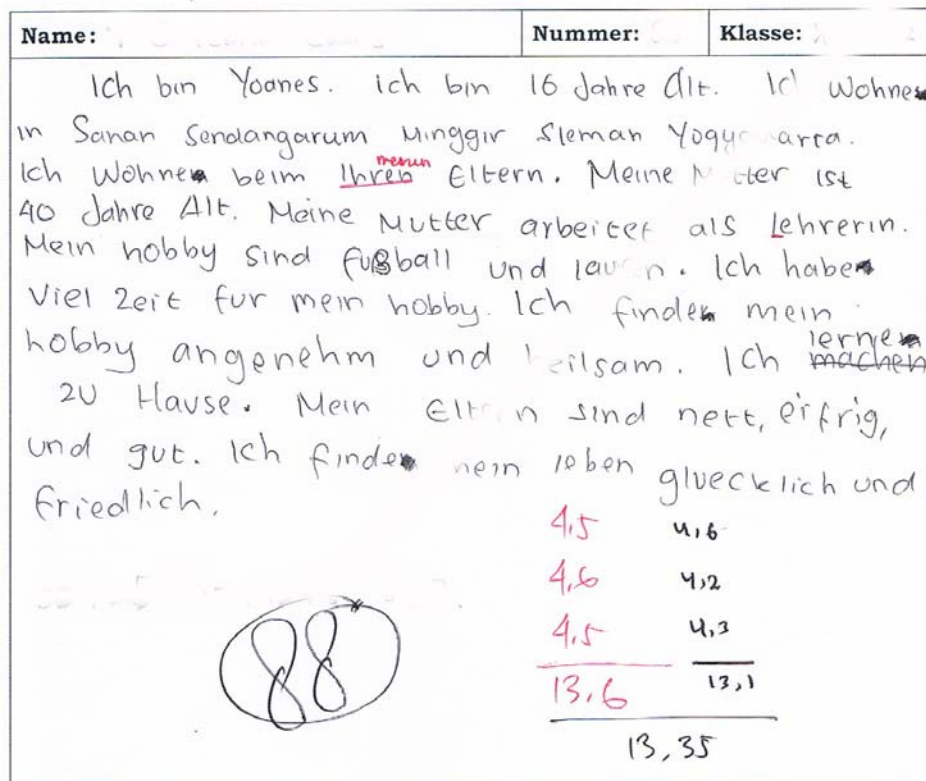 Name: Nummer: Klasse:
Ich bin Yoanes. ich bin 16 Jahre Alt. Wohne
in Sanan Sendangarum Minggir Sleman
Ich Wohne beim Ihren meinen Eltern. Meine ist
40 Jahre Alt. Meine Mutter arbeitet als Lehrerin.
Mein hobby sind fußball und. Ich habe
Viel Zeit fur mein hobby. Ich finde mein
hobby angenehm und. Ich machen lerne
zu Hause. Mein sind nett, eifrig,
und gut. Ich finde leben gluecklich und
friedlich.
4,5 4,6
4,6 4,2
4,5 4,3
13,6 13,1
13,35
88